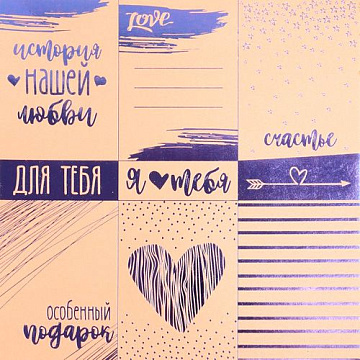 история
нашей
любви
Love
счастье
ДЛЯ ТЕБЯ
я тебя
особенный
подарок